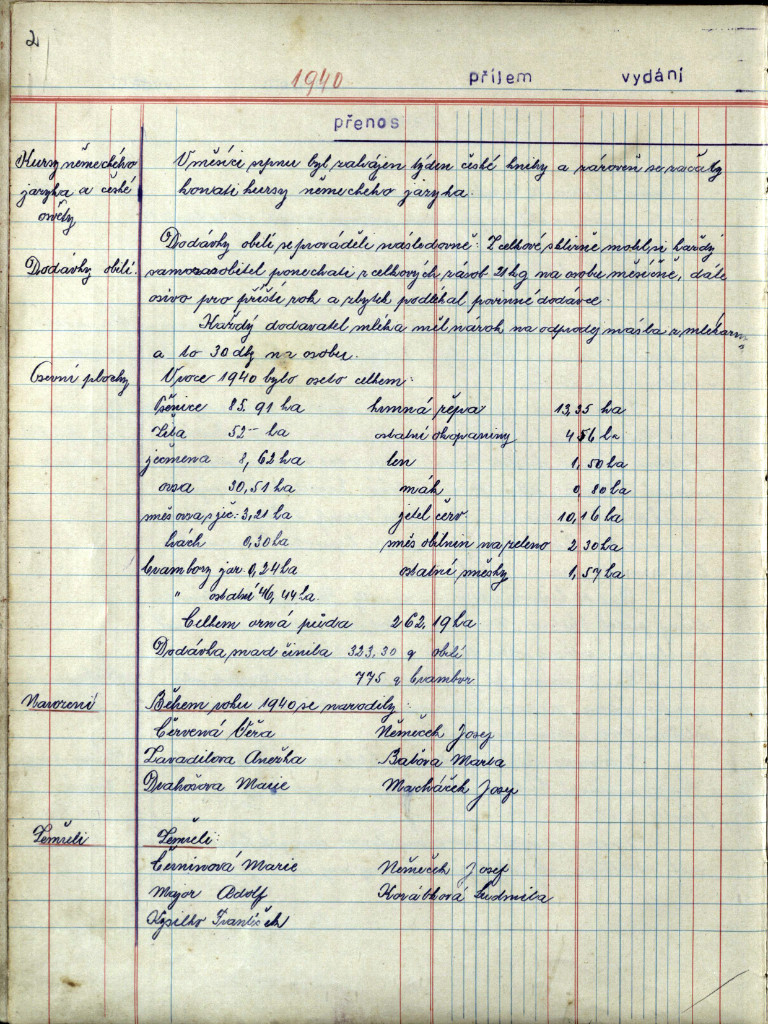 2
1940 příjem vydání
přenos
Kursy německého V měsíci srpnu byl zahájen týden české knihy a zároveň se začaly
jazyka a české konati kursy německého jazyka.
osvěty
Dodávky obilí se prováděli následovně: Z celkové sklizně mohl si každý
Dodávky obilí. samozasobitel ponechati z celkových zásob 21 kg na osobu měsíčně, dále
osivo pro příští rok a zbytek podléhal povinné dodávce.
Každý dodavatel mléka měl nárok na odprodej másla z mlékárny
a to 30 dkg na osobu.
Osevní plochy V roce 1940 bylo oseto celkem:
Pšenice 85,91 ha krmná řepa 13,35 ha
Žita 52- ha ostatní okopaniny 4 56 ha
ječmena 8,62 ha len 1,50 ha
ovsa 30,51 ha mák 0,80 ha
měs ovsa s ječ: 3,21 ha jetel červ. 10,16 ha
hrách 0,30 ha měs obilnin na zeleno 2 30 ha
brambory jar. 0,24 ha ostatní směsky 1,57 ha
" ostatní 46,44 ha.
Celkem orná půda 262,19 ha.
Dodávka činila 323,30 q obilí
775 q brambor
Narození Během roku 1940 se narodily:
Červená Věra Němeček Josef
Zavadilova Anežka Baťova Marta
Drahošova Marie Macháček Josef
Zemřeli Zemřeli:
Černinová Marie Němeček Josef
Major Adolf Korábková Ludmila
Kysilko František